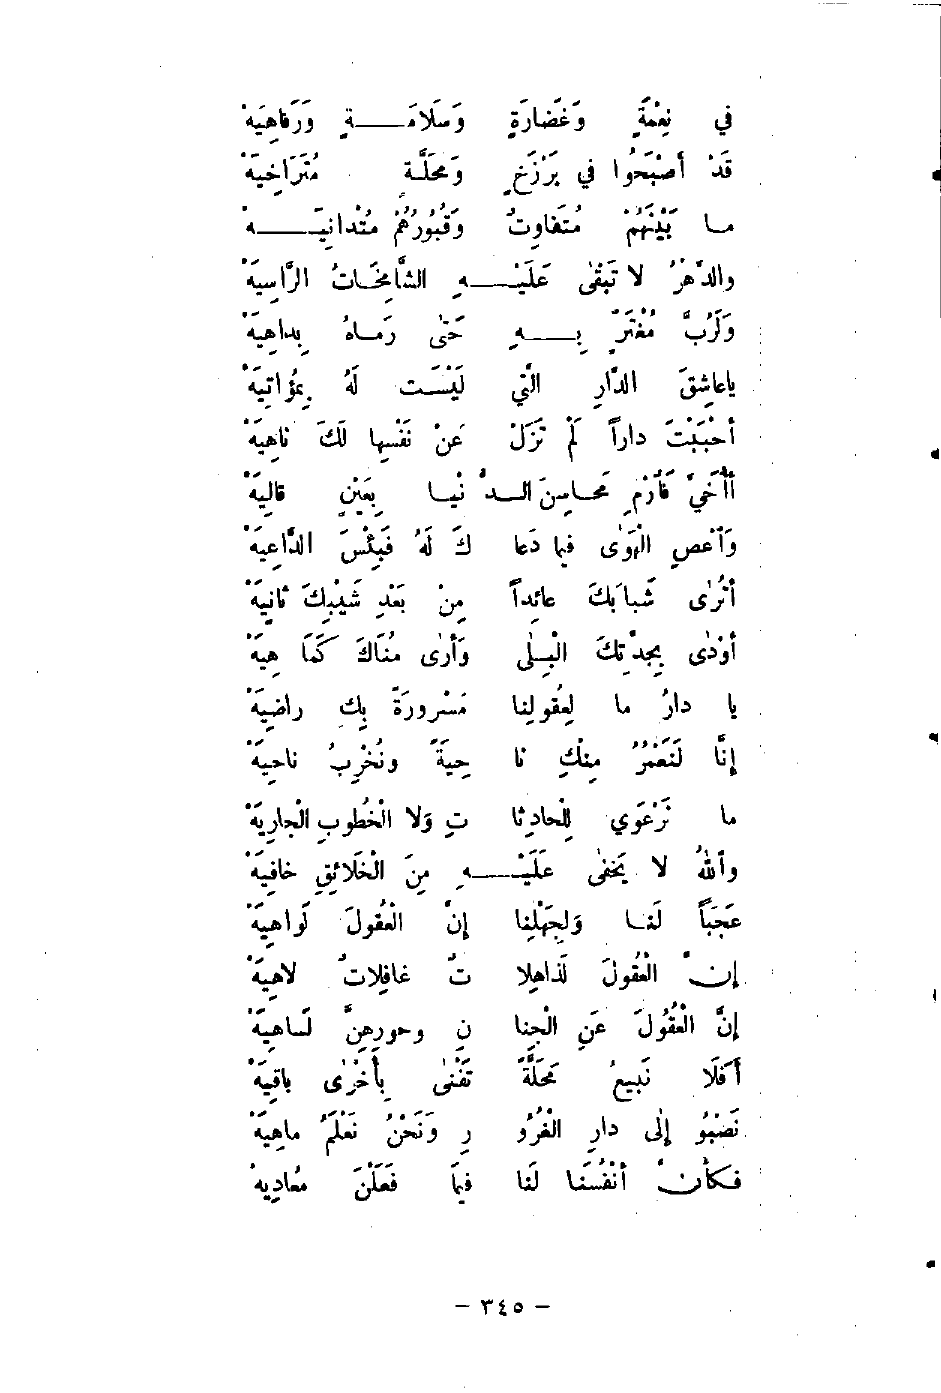 في نِعْمَةٍ وَغَضَارَةٍ وَسَلَامَـــةٍ وَرَفَاهِيَهْ
قَدْ أَصْبَحُوا في بَرْزَخٍ وَمَحَلَّـةٍ مُتَرَاخِيَهْ
مـا بَيْنَهُمْ مُتَفَاوِتٌ وَقُبُورُهُمْ مُتْدانِيَـــهْ
والدَّهْرُ لا تَبْقَى عَلَيْـــهِ الشَّامِخَاتُ الرَّاسِيَهْ
وَلَرُبَّ مُغْتَرٍّ بِـــهِ حَتَّى رَمَـاهُ بِداهِيَهْ
ياعاشِقَ الدَّارِ الَّتي لَيْسَـت لَهُ بِمُؤاتِيَهْ
أَحْبَبْتَ داراً لَمْ تَزَلْ عَنْ نَفْسِها لَكَ نَاهِيَهْ
أَأُخَيَّ فَأرْمِ مَحَـاسِنَ الـدُّ نْيـا بِعَيْنٍ قالِيَهْ
وَأعْصِ الْهَوَى فيما دَعا كَ لَهُ فَبِئْسَ الدَّاعِيَهْ
أَتُرَى شَبابَكَ عائِداً مِنْ بَعْدِ شَيْبِكَ ثانِيَهْ
أَوْدَى بِجِدَّتِكَ الْبِـلَى وَأَرَى مُنَاكَ كَمَا هِيَهْ
يا دارُ ما لِعُقولِنا مَسْرورَةً بِكِ راضِيَهْ
إِنَّا لَنَعْمُرُ مِنْكِ نا حِيَةً ونُخْرِبُ ناحِيَهْ
ما نَرْعَوي لِلْحادِثا تِ وَلا الْخُطُوبِ الْجارِيَهْ
وأللهُ لا يَخْفَى عَلَيْـــهِ مِنَ الْخَلَائِقِ خافِيَهْ
عَجَباً لَنـا وَلِجَهْلِنا إِنَّ الْعُقُولَ لَواهِيَهْ
إِنَّ الْعُقُولَ لَذاهِلا تٌ غافِلاتٌ لاهِيَهْ
إِنَّ الْعُقُولَ عَنِ الْجِنا نِ وحورِهِنَّ لَساهِيَهْ
أَفَلَا نَبِيعُ مَحَلَّةً تَفْنَى بِأُخْرَى باقِيَهْ
نَصْبُو إِلَى دارِ الْغُرُو رِ وَنَحْنُ نَعْلَمُ ماهِيَهْ
فـكأَنَّ أَنْفُسَنـا لَنا فيمَا فَعَلْنَ مُعادِيهْ
- ٣٤٥ -